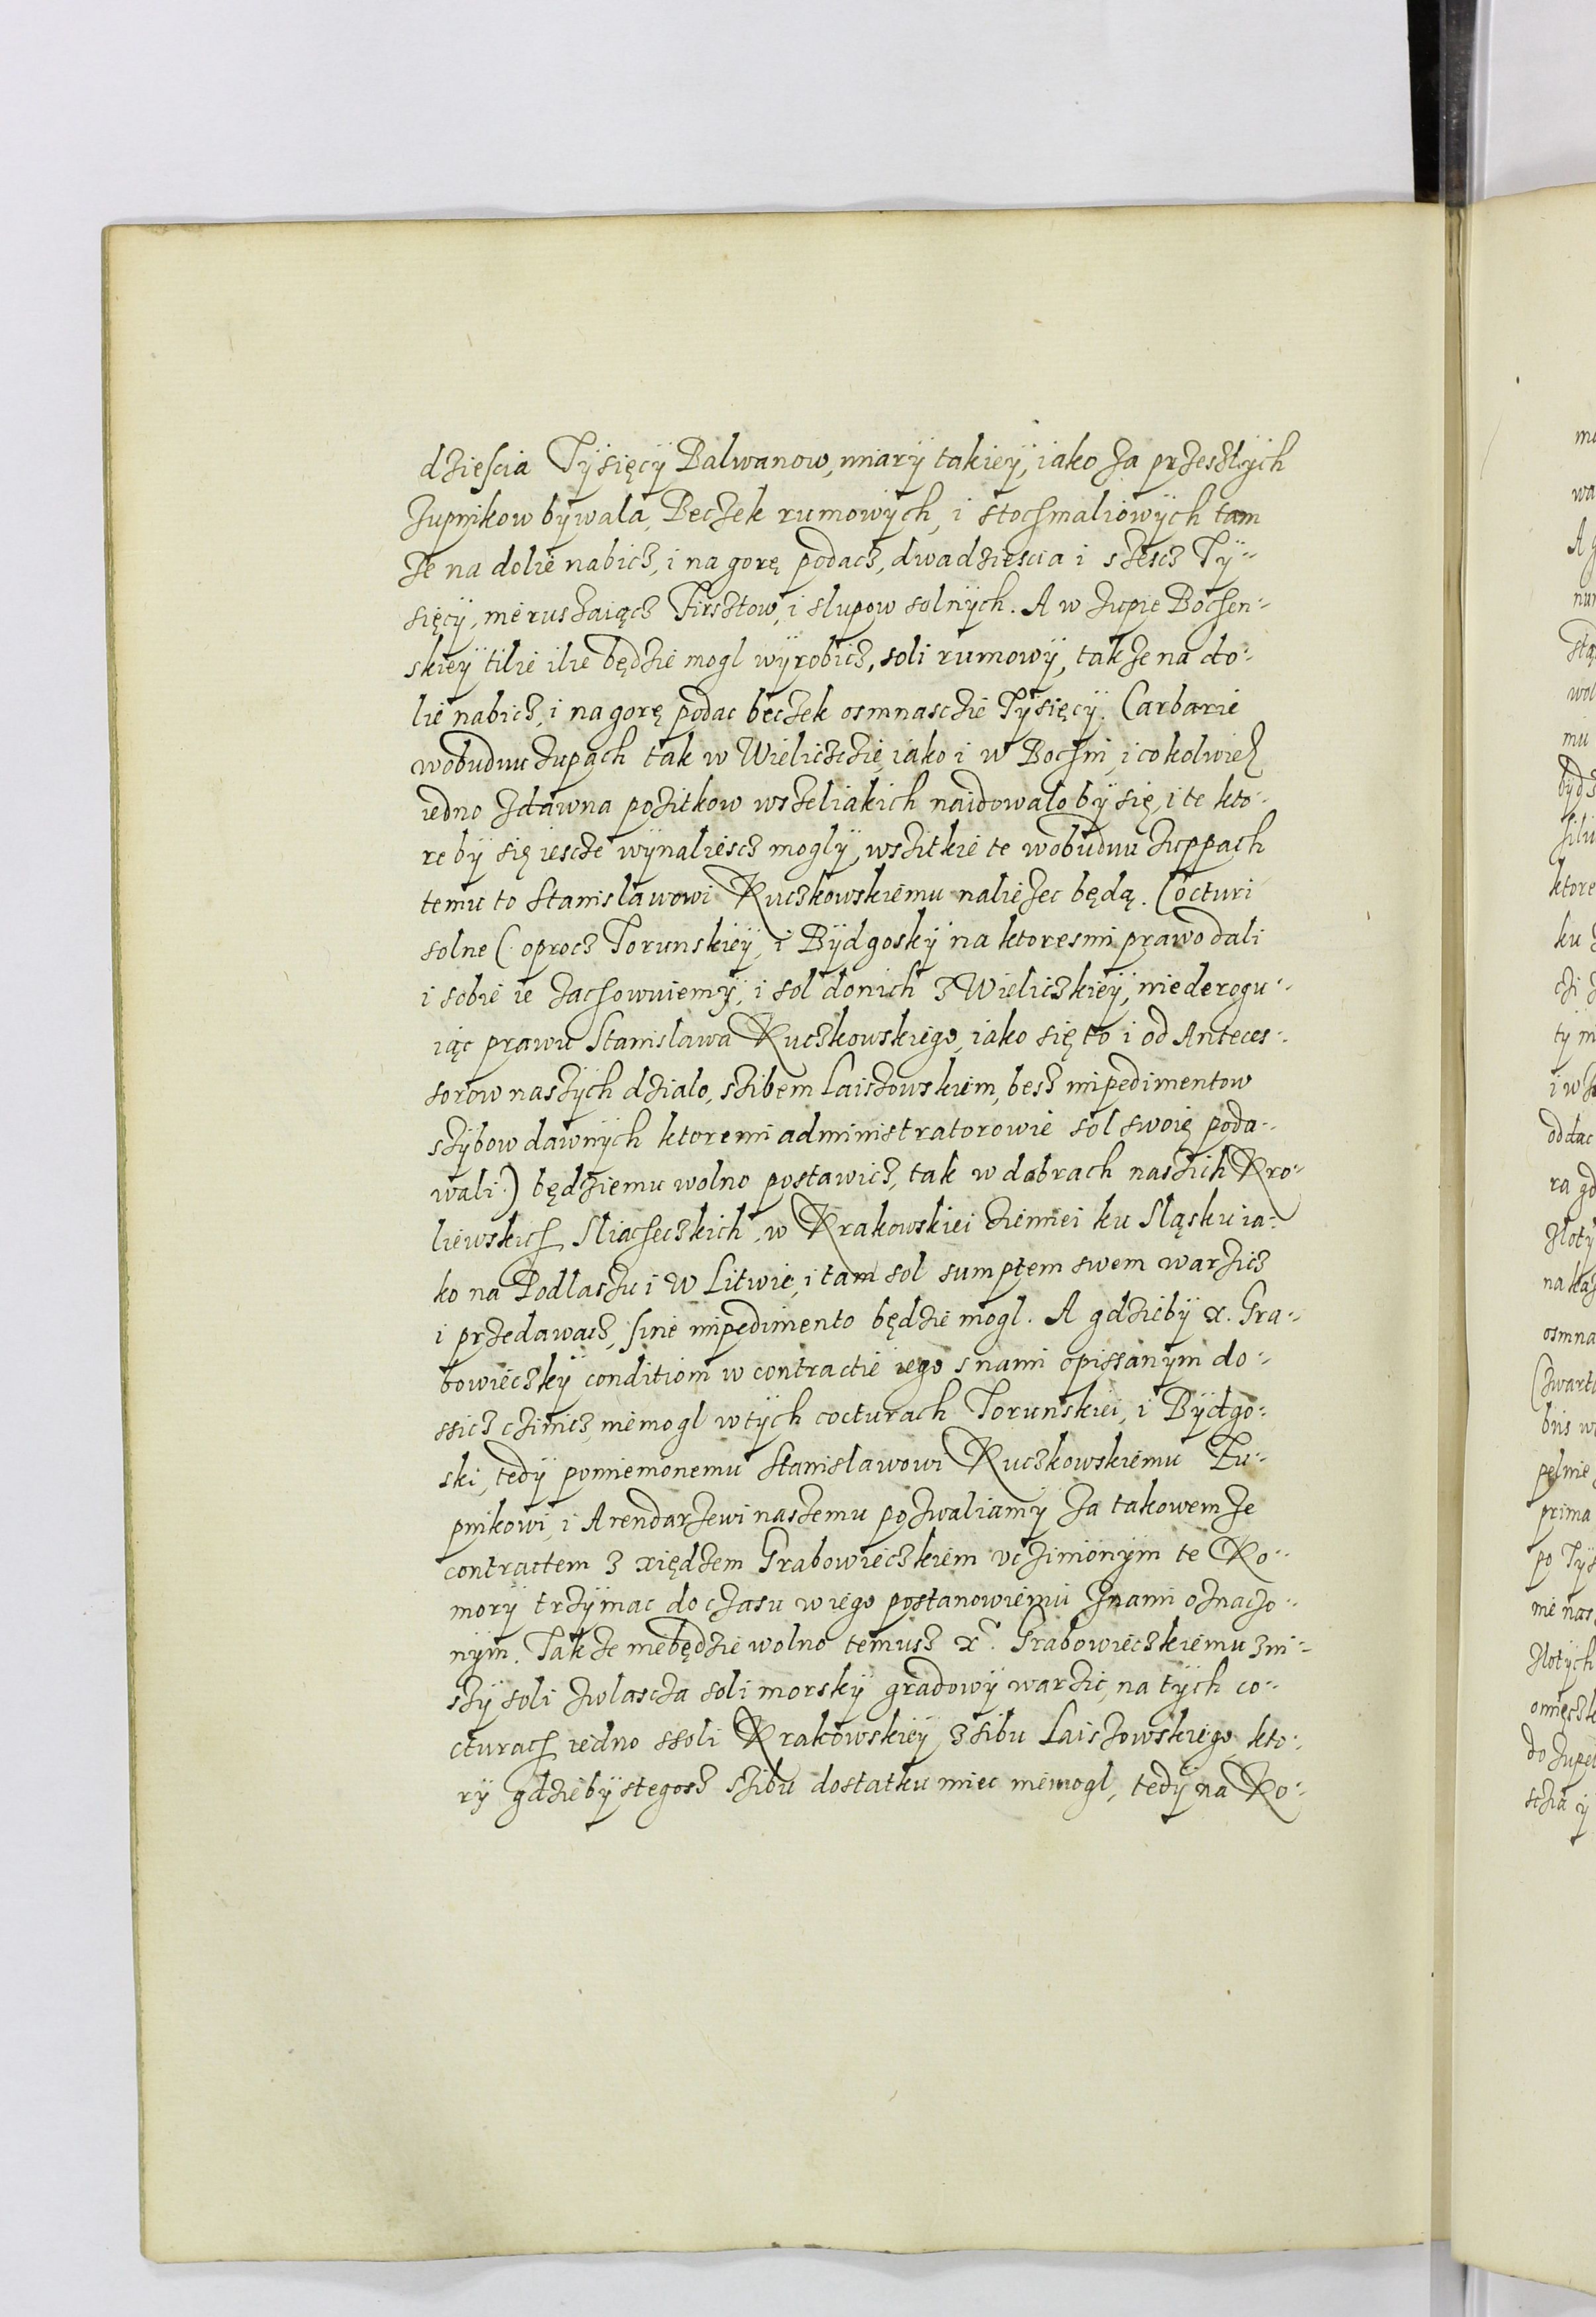 dzieścia Tysięcÿ Balwanow, miarÿ takieÿ, iako za przeszłÿch
zupnikow bÿwala, Beczek rumowÿch, i stochmaliowÿch tam
ze na dolie nabicz, i na gorę podacz, dwadziescia i szescz Tÿ-
sięcÿ, nieruszaiącz Firsztow, i slupow solnÿch. A w zupie Bochen-
skieÿ tilie ilie będzie mogl wÿrobicz, soli rumowÿ, takze na do-
lie nabicz, i na gorę podac beczek osmnasczie Tÿsięcÿ. Carbarie
wobudwu zupach tak w Wieliczczie, iako i w Bochni, i cokolwiek
iedno zdawna pozitkow wszeliakich naidowalo bÿ się, i te kto-
re bÿ się iescze wÿnaliescz moglÿ, wszitkie te wobudwu zuppach
temu to Stanislawowi Kuczkowskiemu naliezec będą. Cocturi
solne (: oprocz Torunskieÿ, i Bÿdgoskÿ na ktoresmi prawo dali
i sobie ie zachowuiemÿ, i sol donich z Wieliczkieÿ, niederogu-
iąc prawu Stanislawa Kuczkowskiego, iako się to i od Anteces-
sorow naszÿch dzialo, szibem Laiszowskiem, besz impedimentow
szÿbow dawnÿch ktoremi administratorowie sol swoię poda-
wali:) będziemu wolno postawicz, tak w dobrach naszich Kro-
liewskich Sliacheczkich, w Krakowskiei ziemiei ku Sląsku ia-
ko na Podlaszu i w Litwie, i tam sol sumptem swem warzicz
i przedawacz, sine impedimento będzie mogl. A gdziebÿ x. Gra-
bowieczkÿ conditiom w contractie iego s nami opissanÿm do-
ssicz czinicz, niemogl wtÿch cocturach Torunskiei, i Bÿdgo-
ski, tedÿ pomiemonemu Stanislawowi Kuczkowskiemu Zu-
pnikowi, i Arendarzewi naszemu pozwaliamÿ za takowemze
contractem z xiędzem Grabowieczkiem vczinionÿm te Ko-
morÿ trzÿmac do czasu w iego postanowieniu znami oznaczo-
nÿm. Takze niebędzie wolno temusz x. Grabowieczkiemu zni-
szÿ soli zwlascza soli morskÿ gradowÿ warzic, na tÿch co-
cturach iedno ssoli Krakowskieÿ z sibu Laiszowskiego, kto-
rÿ gdziebÿ stegosz szibu dostatku miec niemogl, tedÿ na Ko-